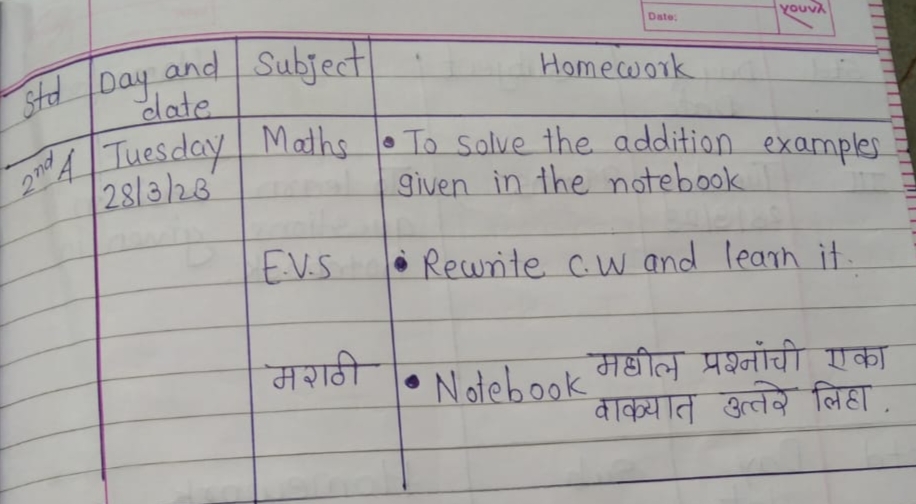 Date:
YOUVA
Std Day and date Subject Homework
2nd A Tuesday 28/3/23 Maths • To solve the addition examples
given in the notebook
E.V.S • Rewrite C.W and learn it.
मराठी • Notebook मधील प्रश्नांची एका
वाक्यात उत्तरे लिहा.